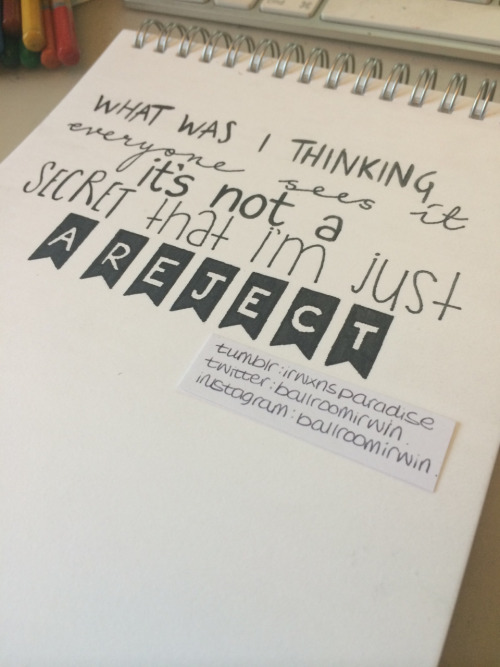 WHAT WAS I THINKING
everyone sees it
it's not a
SECRET that i'm just
A REJECT
tumblr:irwxnsparadise
twitter:ballroomirwin
instagram:ballroomirwin